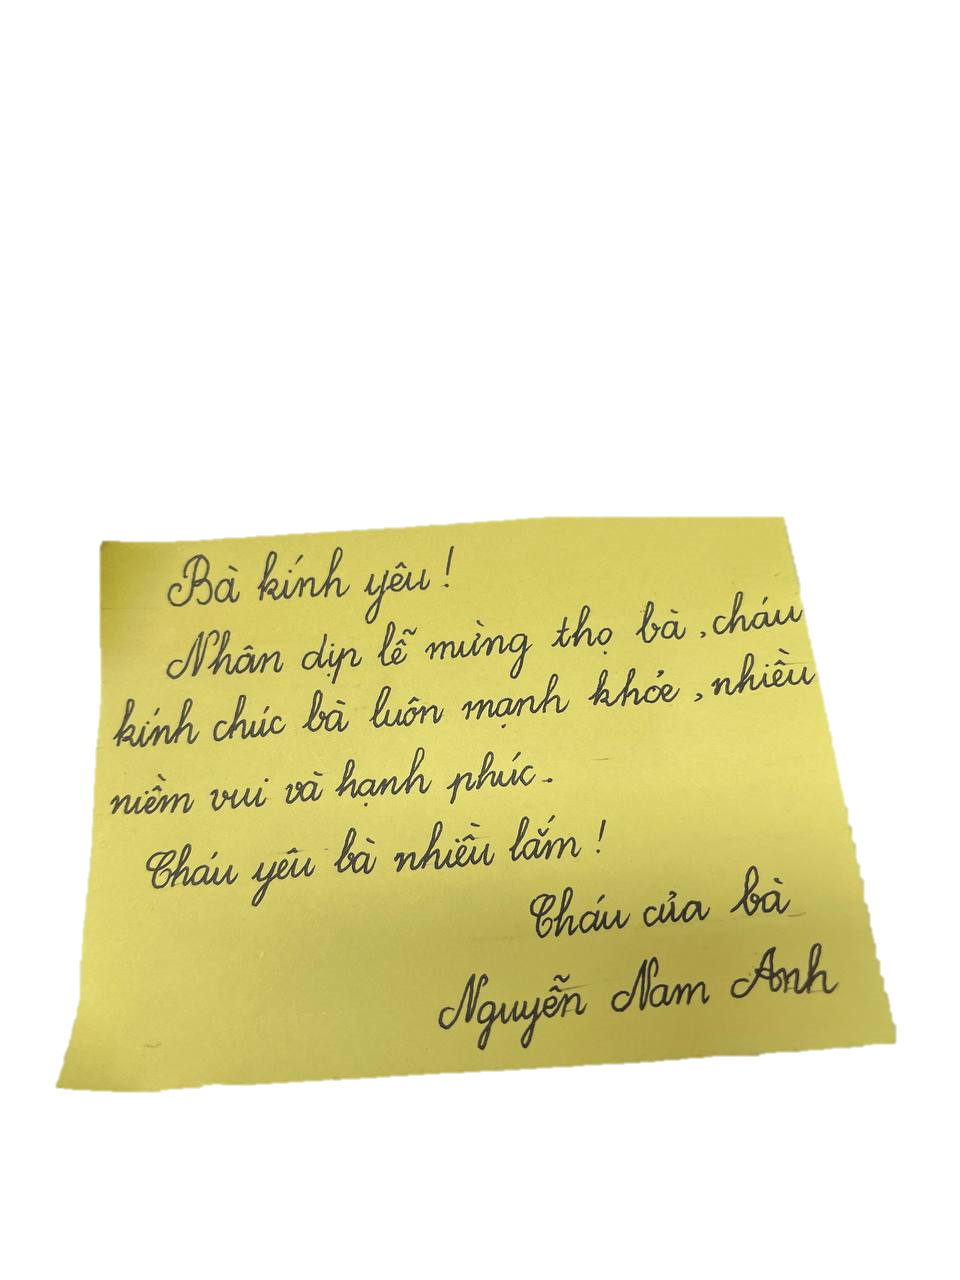 Bà kính yêu !
Nhân dịp lễ mừng thọ bà, cháu
kính chúc bà luôn mạnh khỏe, nhiều
niềm vui và hạnh phúc.
Cháu yêu bà nhiều lắm !
Cháu của bà
Nguyễn Nam Anh